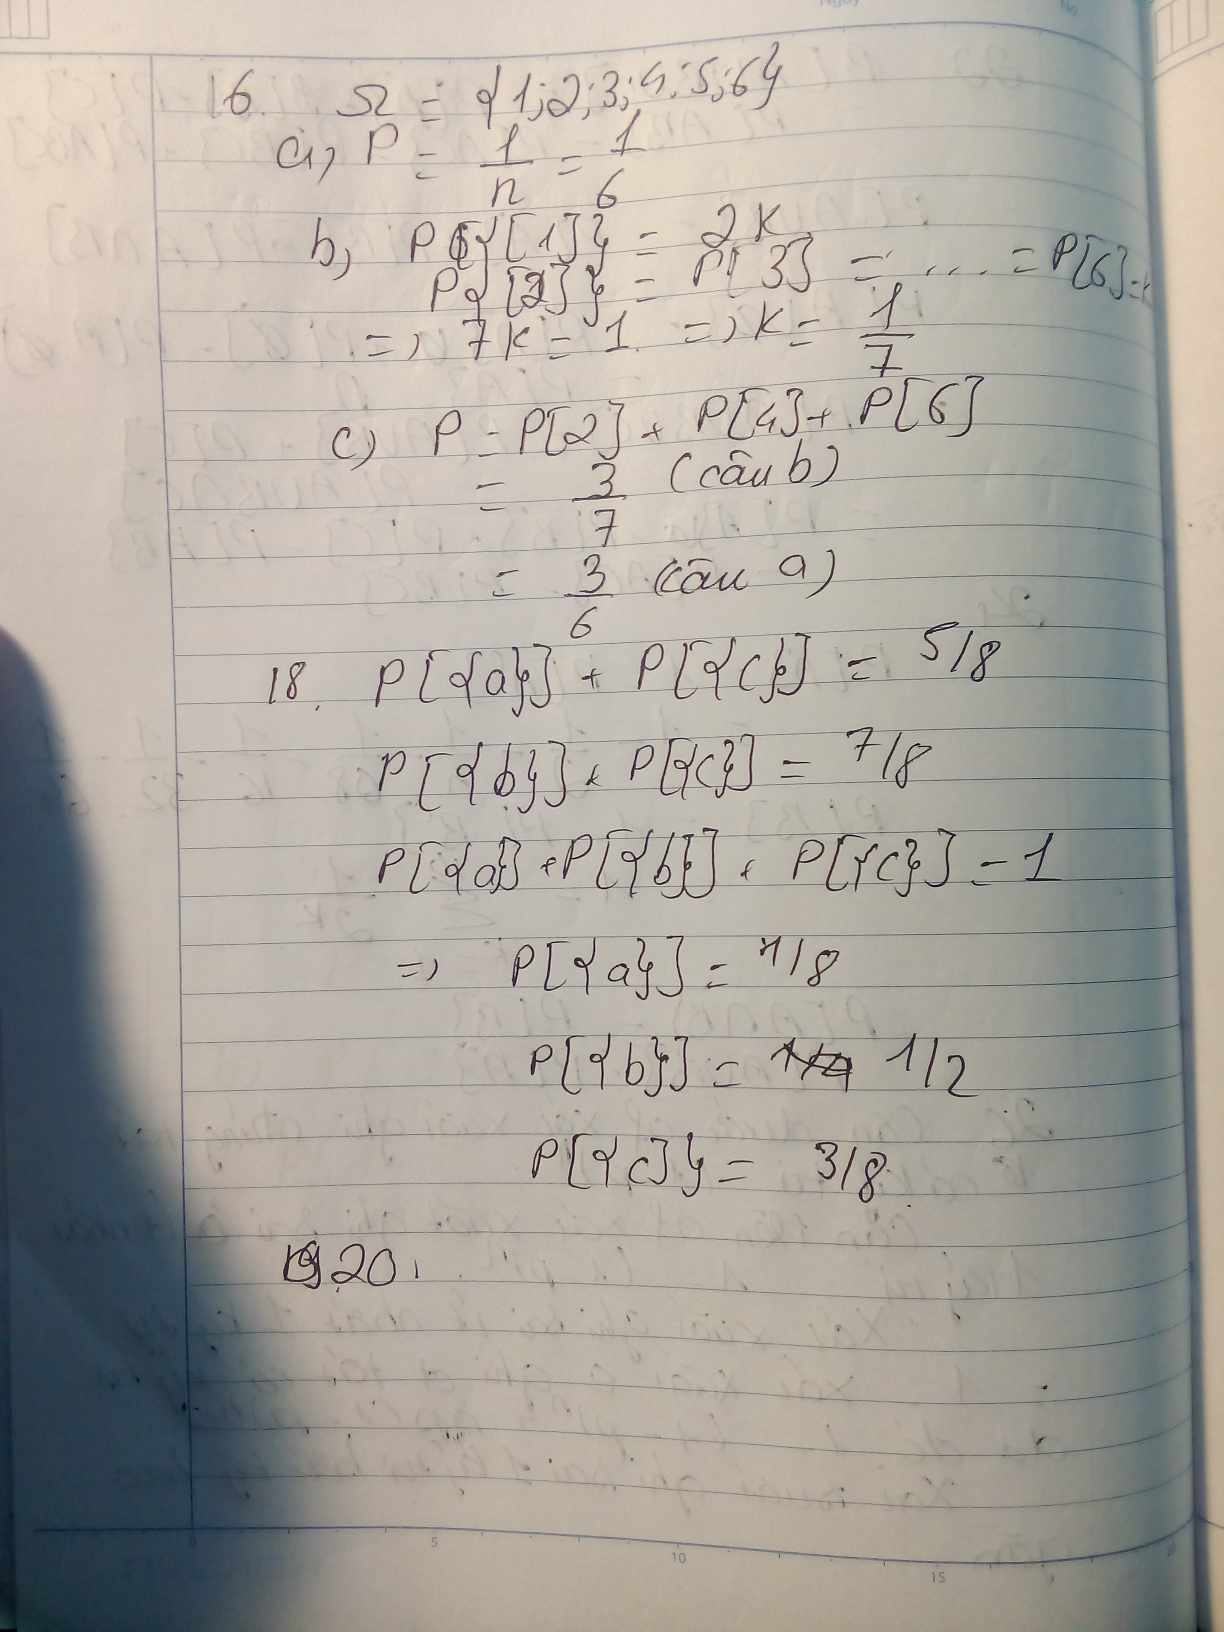 16. Ω = {1;2;3;4;5;6}
a, P = 1/n = 1/6
b, P{[1]} = 2k
P{[2]} = P[3] = ... = P[6] = k
=> 7k = 1 => k = 1/7
c) P = P[2] + P[4] + P[6]
= 3/7 (câu b)
= 3/6 (câu a)
18. P[{a}] + P[{c}] = 5/8
P[{b}] + P[{c}] = 7/8
P[{a}] + P[{b}] + P[{c}] = 1
=> P[{a}] = 1/8
P[{b}] = 1/2
P[{c]} = 3/8
20.
5 10 15